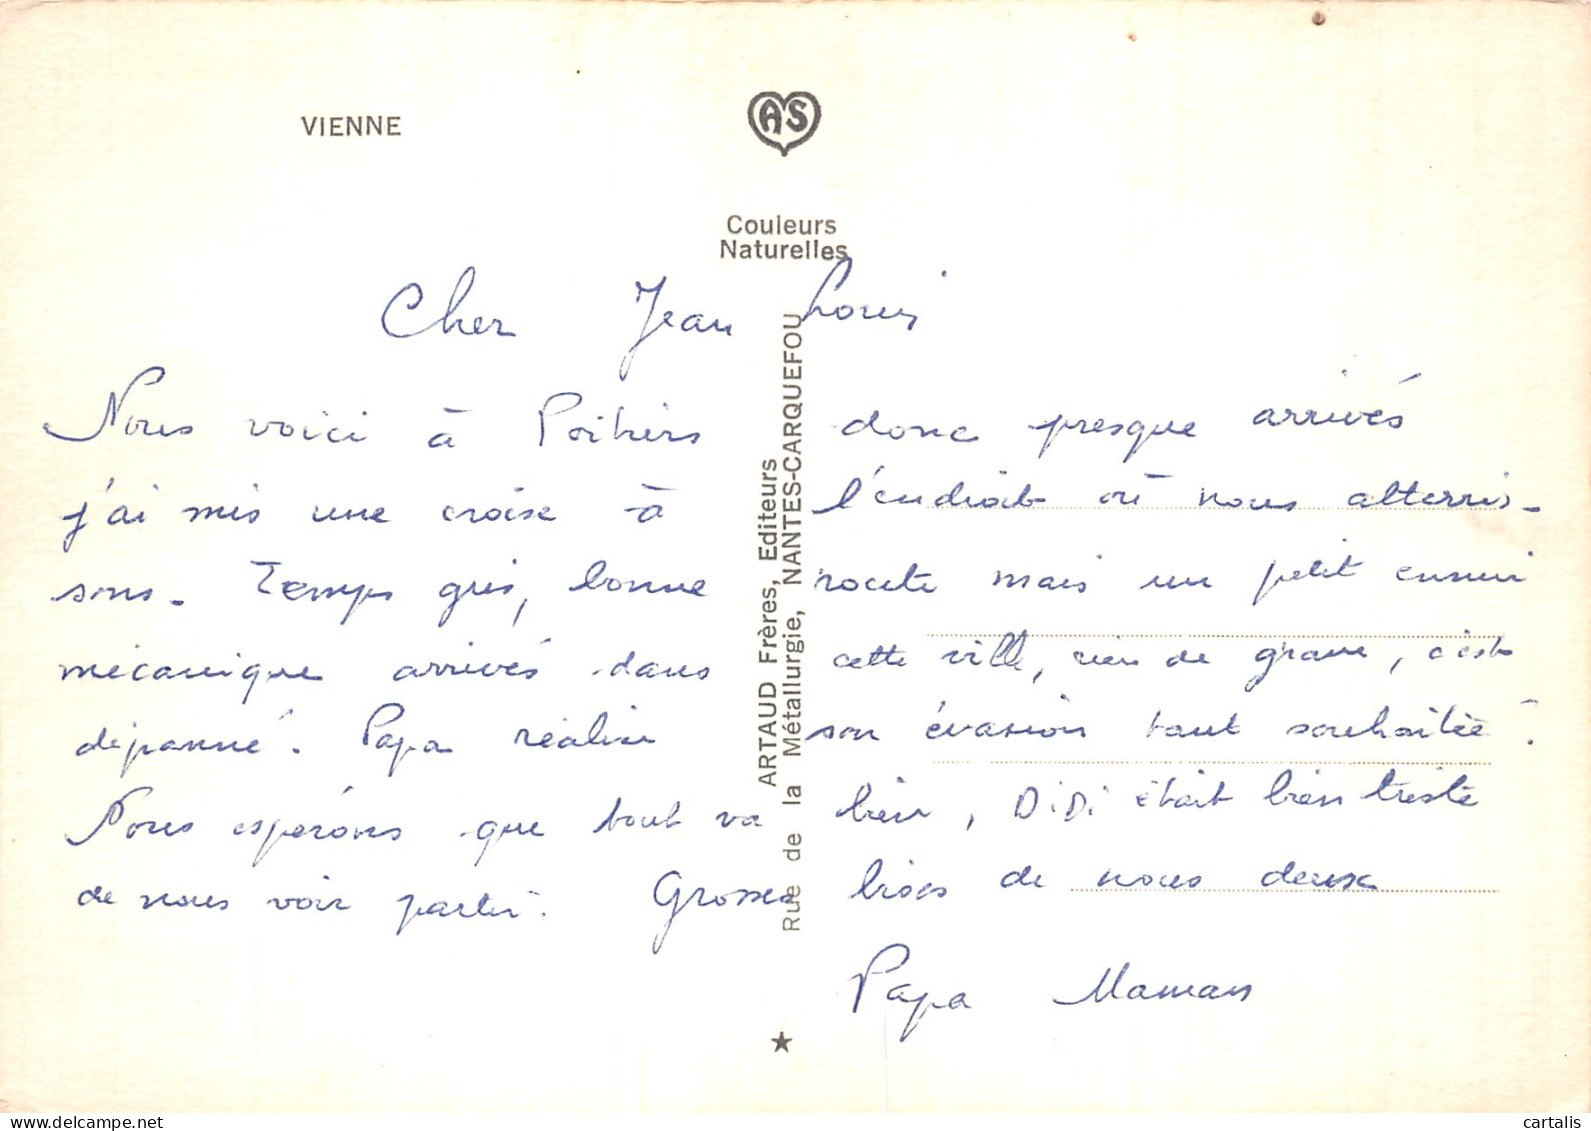 VIENNE
AS
Couleurs
Naturelles
Cher Jean Louis
Nous voici à Poitiers donc presque arrivés
j'ai mis une croix à l'endroit où nous atterris-
sons. Temps gris, bonne route mais un petit ennui
mécanique arrivés dans cette ville, rien de grave, c'est
dépanné. Papa réalise son évasion tant souhaitée !
Nous espérons que tout va bien, DiDi était bien triste
de nous voir partir. Grosses bises de nous deux
Papa Maman
ARTAUD Frères, Editeurs
Rue de la Métallurgie, NANTES-CARQUEFOU
★
delcampe.net
cartalis